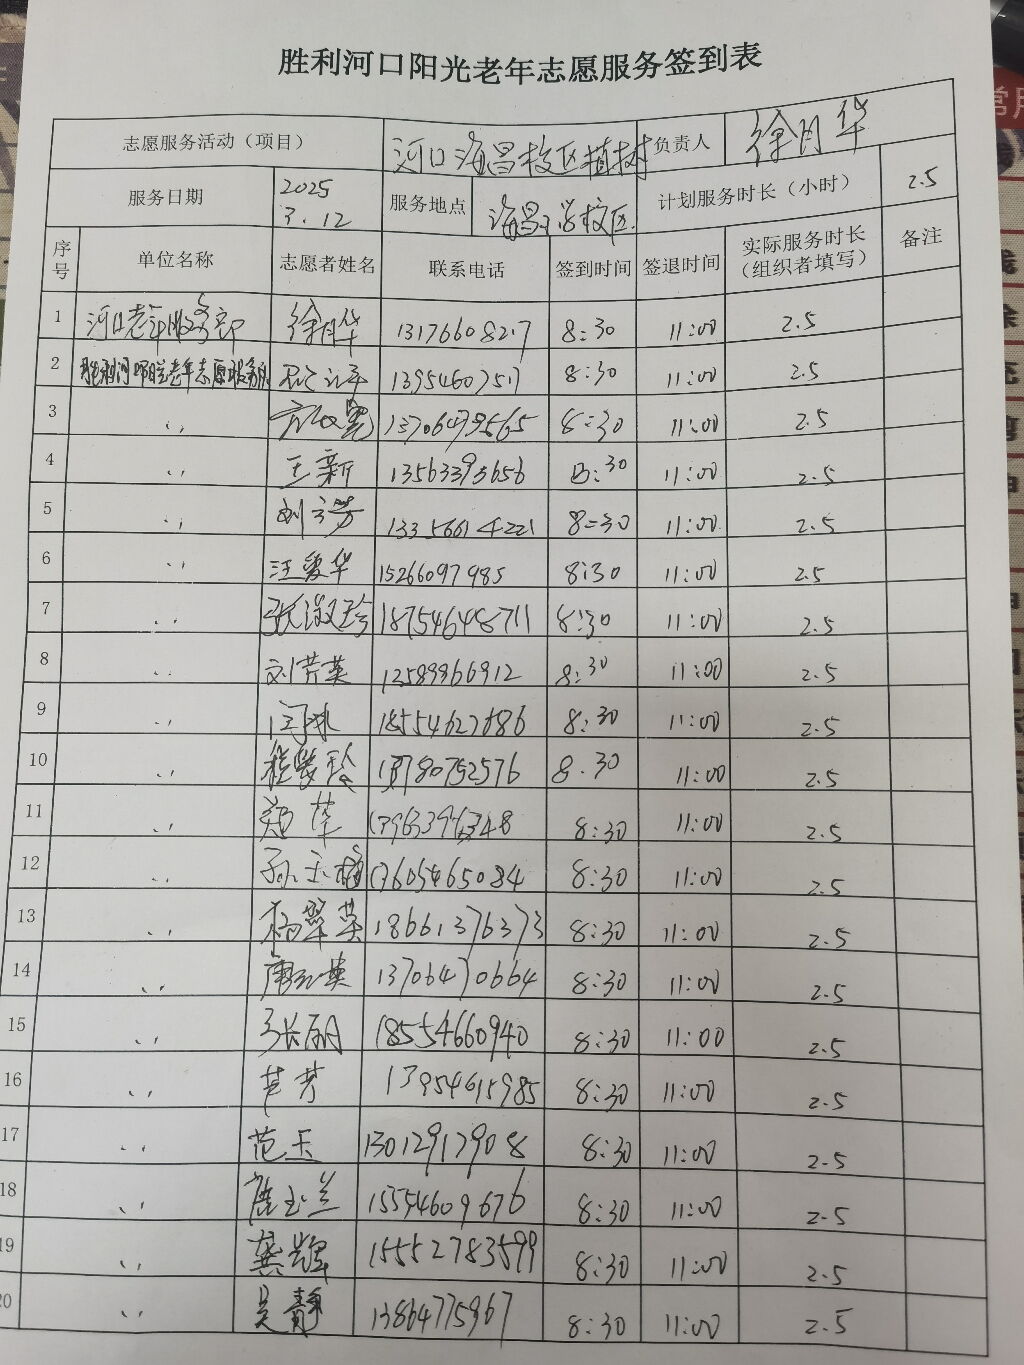 胜利河口阳光老年志愿服务签到表
志愿服务活动（项目） 河口海昌校区植树 负责人 徐月华
服务日期 2025 3.12 服务地点 海昌学校区 计划服务时长（小时） 2.5
序号 单位名称 志愿者姓名 联系电话 签到时间 签退时间 实际服务时长（组织者填写） 备注
1 河口老年服务部 徐月华 13176608217 8:30 11:00 2.5
2 胜利河口阳光老年志愿服务队 13954607517 8:30 11:00 2.5
3 〃 8:30 11:00 2.5
4 〃 王新 13563393656 8:30 11:00 2.5
5 〃 刘芳 13356614221 8:30 11:00 2.5
6 〃 汪爱华 15266097985 8:30 11:00 2.5
7 〃 张淑珍 18754648711 8:30 11:00 2.5
8 〃 刘芹英 13589966912 8:30 11:00 2.5
9 〃 闫冰 8:30 11:00 2.5
10 〃 程翠玲 13780752576 8.30 11:00 2.5
11 〃 郑萍 8:30 11:00 2.5
12 〃 孙玉梅 13605465084 8:30 11:00 2.5
13 〃 杨翠英 18661376373 8:30 11:00 2.5
14 〃 13706470664 8:30 11:00 2.5
15 〃 张丽 18554660940 8:30 11:00 2.5
16 〃 芦芳 13954615985 8:30 11:00 2.5
17 〃 范玉 13012917908 8:30 11:00 2.5
18 〃 唐玉兰 15554609676 8:30 11:00 2.5
19 〃 龚辉 15552783599 8:30 11:00 2.5
20 〃 吴静 13864775967 8:30 11:00 2.5